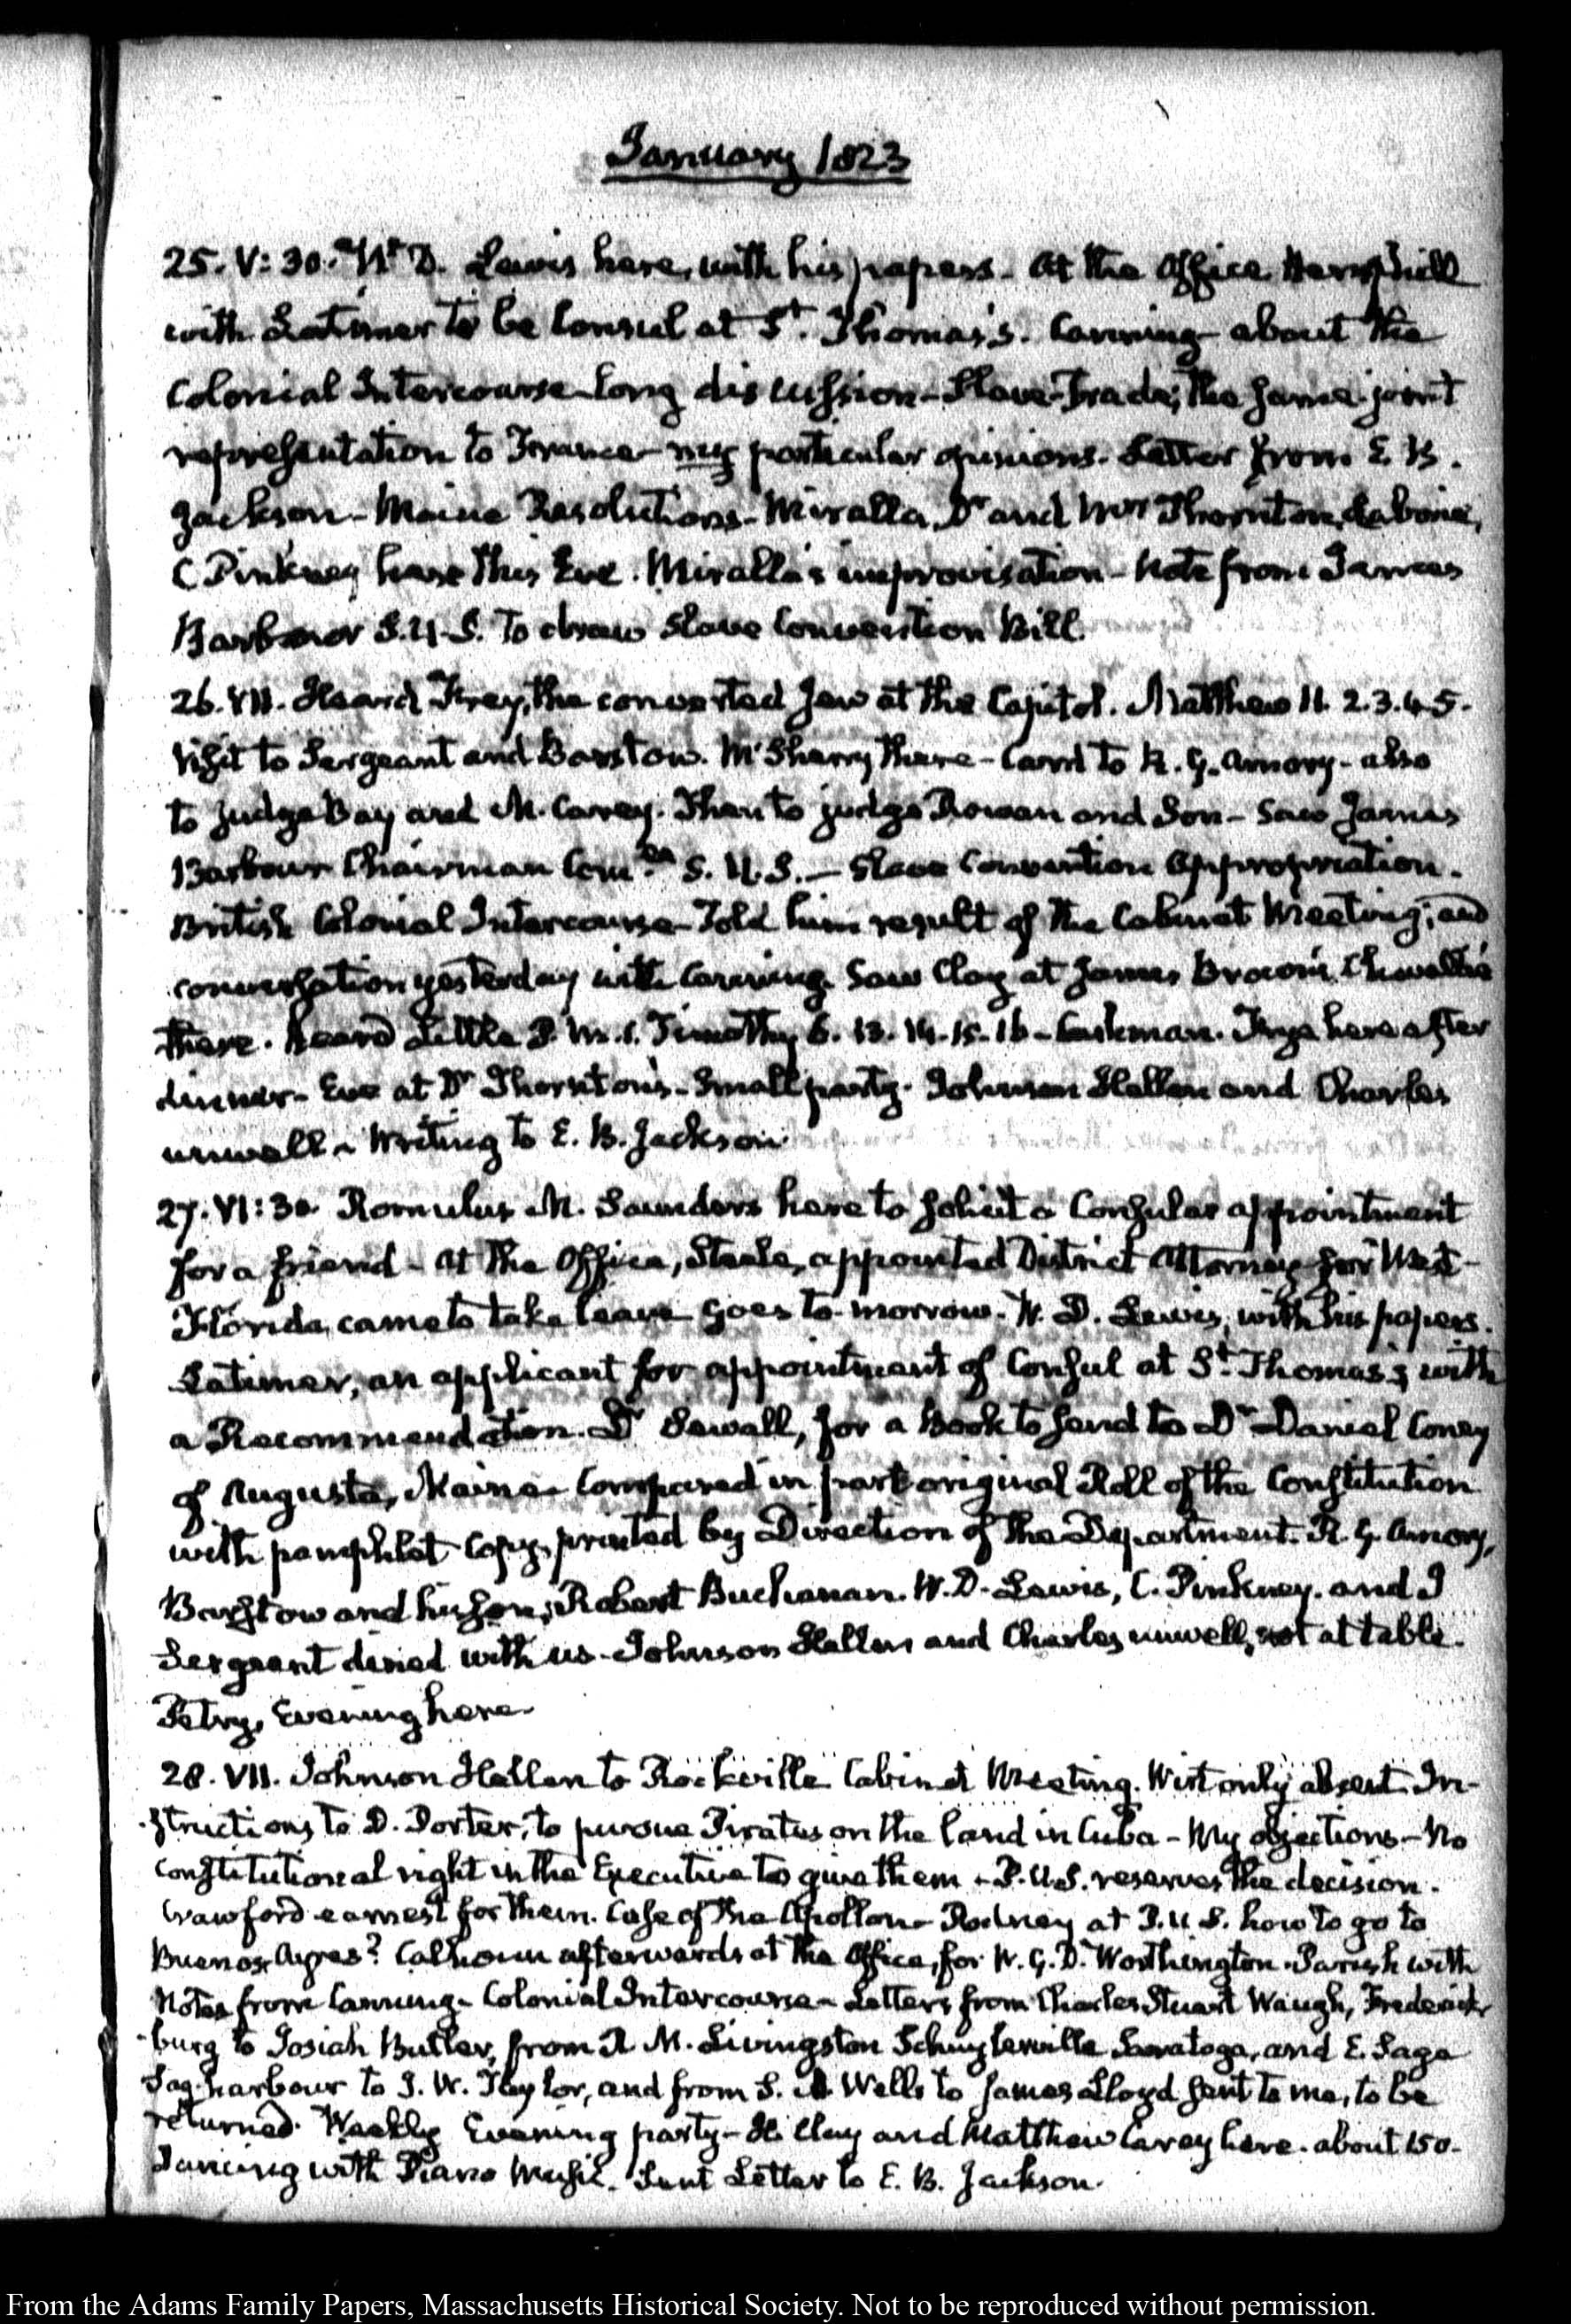 January 1823
25. V: 30. Wm D. Lewis here, with his papers. At the Office Hemphill
with Latimer to be Consul at St. Thomas's. Canning about the
Colonial Intercourse long discussion – Slave-Trade; the same joint
representation to France – my particular opinions. Letter from E. B.
Jackson – Maine Resolutions – Miralla, Dr and Mrs Thornton,
C Pinkney here this Eve. Miralla's improvisation – Note from James
Barbour S.U.S. to draw Slave Convention Bill.
26. VII. Heard Frey, the converted Jew at the Capitol. Matthew 11. 2.3.4.5.
Visit to Sergeant and Barstow. McSherry there – Card to R. G. Amory – also
to Judge Bay and M. Carey. Then to judge Rowan and Son – Saw James
Barbour Chairman S. U.S. – Slave Convention Appropriation.
British Colonial Intercourse – Told him result of the Cabinet Meeting; and
conversation yesterday with Canning. Saw Clay at James Brown's, Chevallié
there. heard Little P. M. 1. Timothy 6. 13. 14. 15. 16 – Cushman. Frye here after
dinner – Eve at Dr Thornton's – Small party. Johnson Hellen and Charles
unwell – Writing to E. B. Jackson.
27. VI: 30. Romulus M. Saunders here to solicit a Consular appointment
for a friend – at the Office, Steele, appointed District Attorney for West-
Florida, came to take leave Goes to-morrow. W. D. Lewis, with his papers.
Latimer, an applicant for appointment of Consul at St. Thomas's, with
a Recommendation. Dr Sewall, for a Book to send to Dr Daniel Coney
of Augusta, Maine – Compared in part original Roll of the Constitution
with pamphlet Copy, printed by Direction of the Department. R. G. Amory,
Barstow and his son, Robert Buchanan. W. D. Lewis, C. Pinkney. and J
Sergeant dined with us – Johnson Hellen and Charles unwell, not at table.
Petry, Evening here.
28. VII. Johnson Hellen to Rockville Cabinet Meeting. Wirt only absent. In-
structions to D. Porter, to pursue Pirates on the land in Cuba – My objections – No
constitutional right in the Executive to give them – P.U.S. reserves the decision.
Crawford earnest for them. Case of the Apollon – Rodney at P.U.S. how to go to
Buenos Ayres? Calhoun afterwards at the Office, for W. G. D. Worthington. Parish with
Notes from Canning – Colonial Intercourse – Letters from Charles Stuart Waugh, Frederick-
burg to Josiah Butler, from R M. Livingston Schuylerville Saratoga, and E. Sage
Sag-harbour to J. W. Taylor, and from S. A. Wells to James Lloyd sent to me, to be
returned. Weekly Evening party – H. Clay and Matthew Carey here. about 150.
Dancing with Piano Music. Sent Letter to E. B. Jackson.
From the Adams Family Papers, Massachusetts Historical Society. Not to be reproduced without permission.